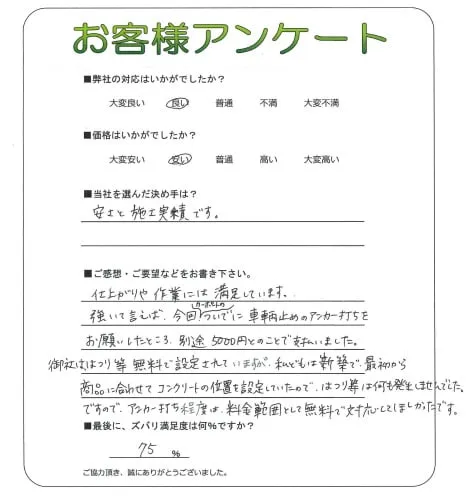 お客様アンケート
■弊社の対応はいかがでしたか？
大変良い 良い 普通 不満 大変不満
■価格はいかがでしたか？
大変安い 安い 普通 高い 大変高い
■当社を選んだ決め手は？
安さと施工実績です。
■ご感想・ご要望などをお書き下さい。
仕上がりや作業には満足しています。
カーポートの
強いて言えば、今回ついでに車輌止めのアンカー打ちを
お願いしたところ、別途5000円とのことで支払いました。
御社ははつり等無料で設定されていますが、私どもは新築で、最初から
商品に合わせてコンクリートの位置を設定していたので、はつり等は何も発生しませんでした。
ですので、アンカー打ち程度は、料金範囲として無料で対応してほしかったです。
■最後に、ズバリ満足度は何%ですか？
75 %
ご協力頂き、誠にありがとうございました。